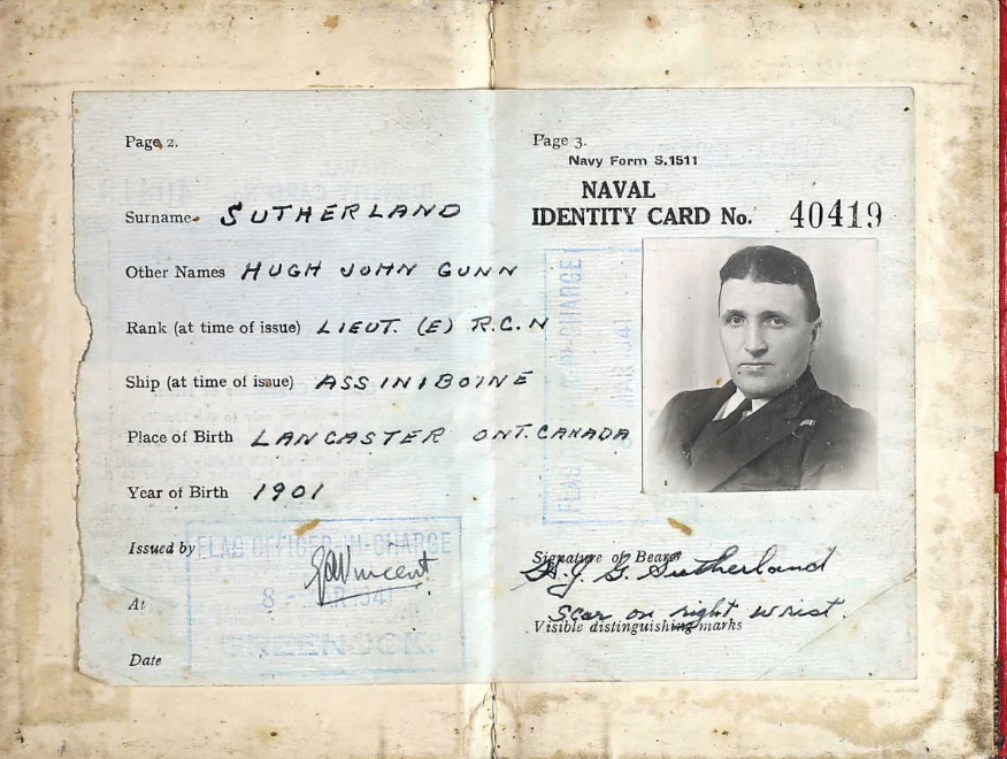 Page 2.
Surname SUTHERLAND
Other Names HUGH JOHN GUNN
Rank (at time of issue) LIEUT. (E) R.C.N
Ship (at time of issue) ASSINIBOINE
Place of Birth LANCASTER ONT. CANADA
Year of Birth 1901
Issued by
FLAG OFFICER-IN-CHARGE
Vincent
At
8 - MAR 1941
GREENOCK
Date
Page 3.
Navy Form S.1511
NAVAL
IDENTITY CARD No. 40419
FLAG OFFICER-IN-CHARGE
8 MAR 1941
Signature of Bearer
H. J. G. Sutherland
Scar on right wrist.
Visible distinguishing marks